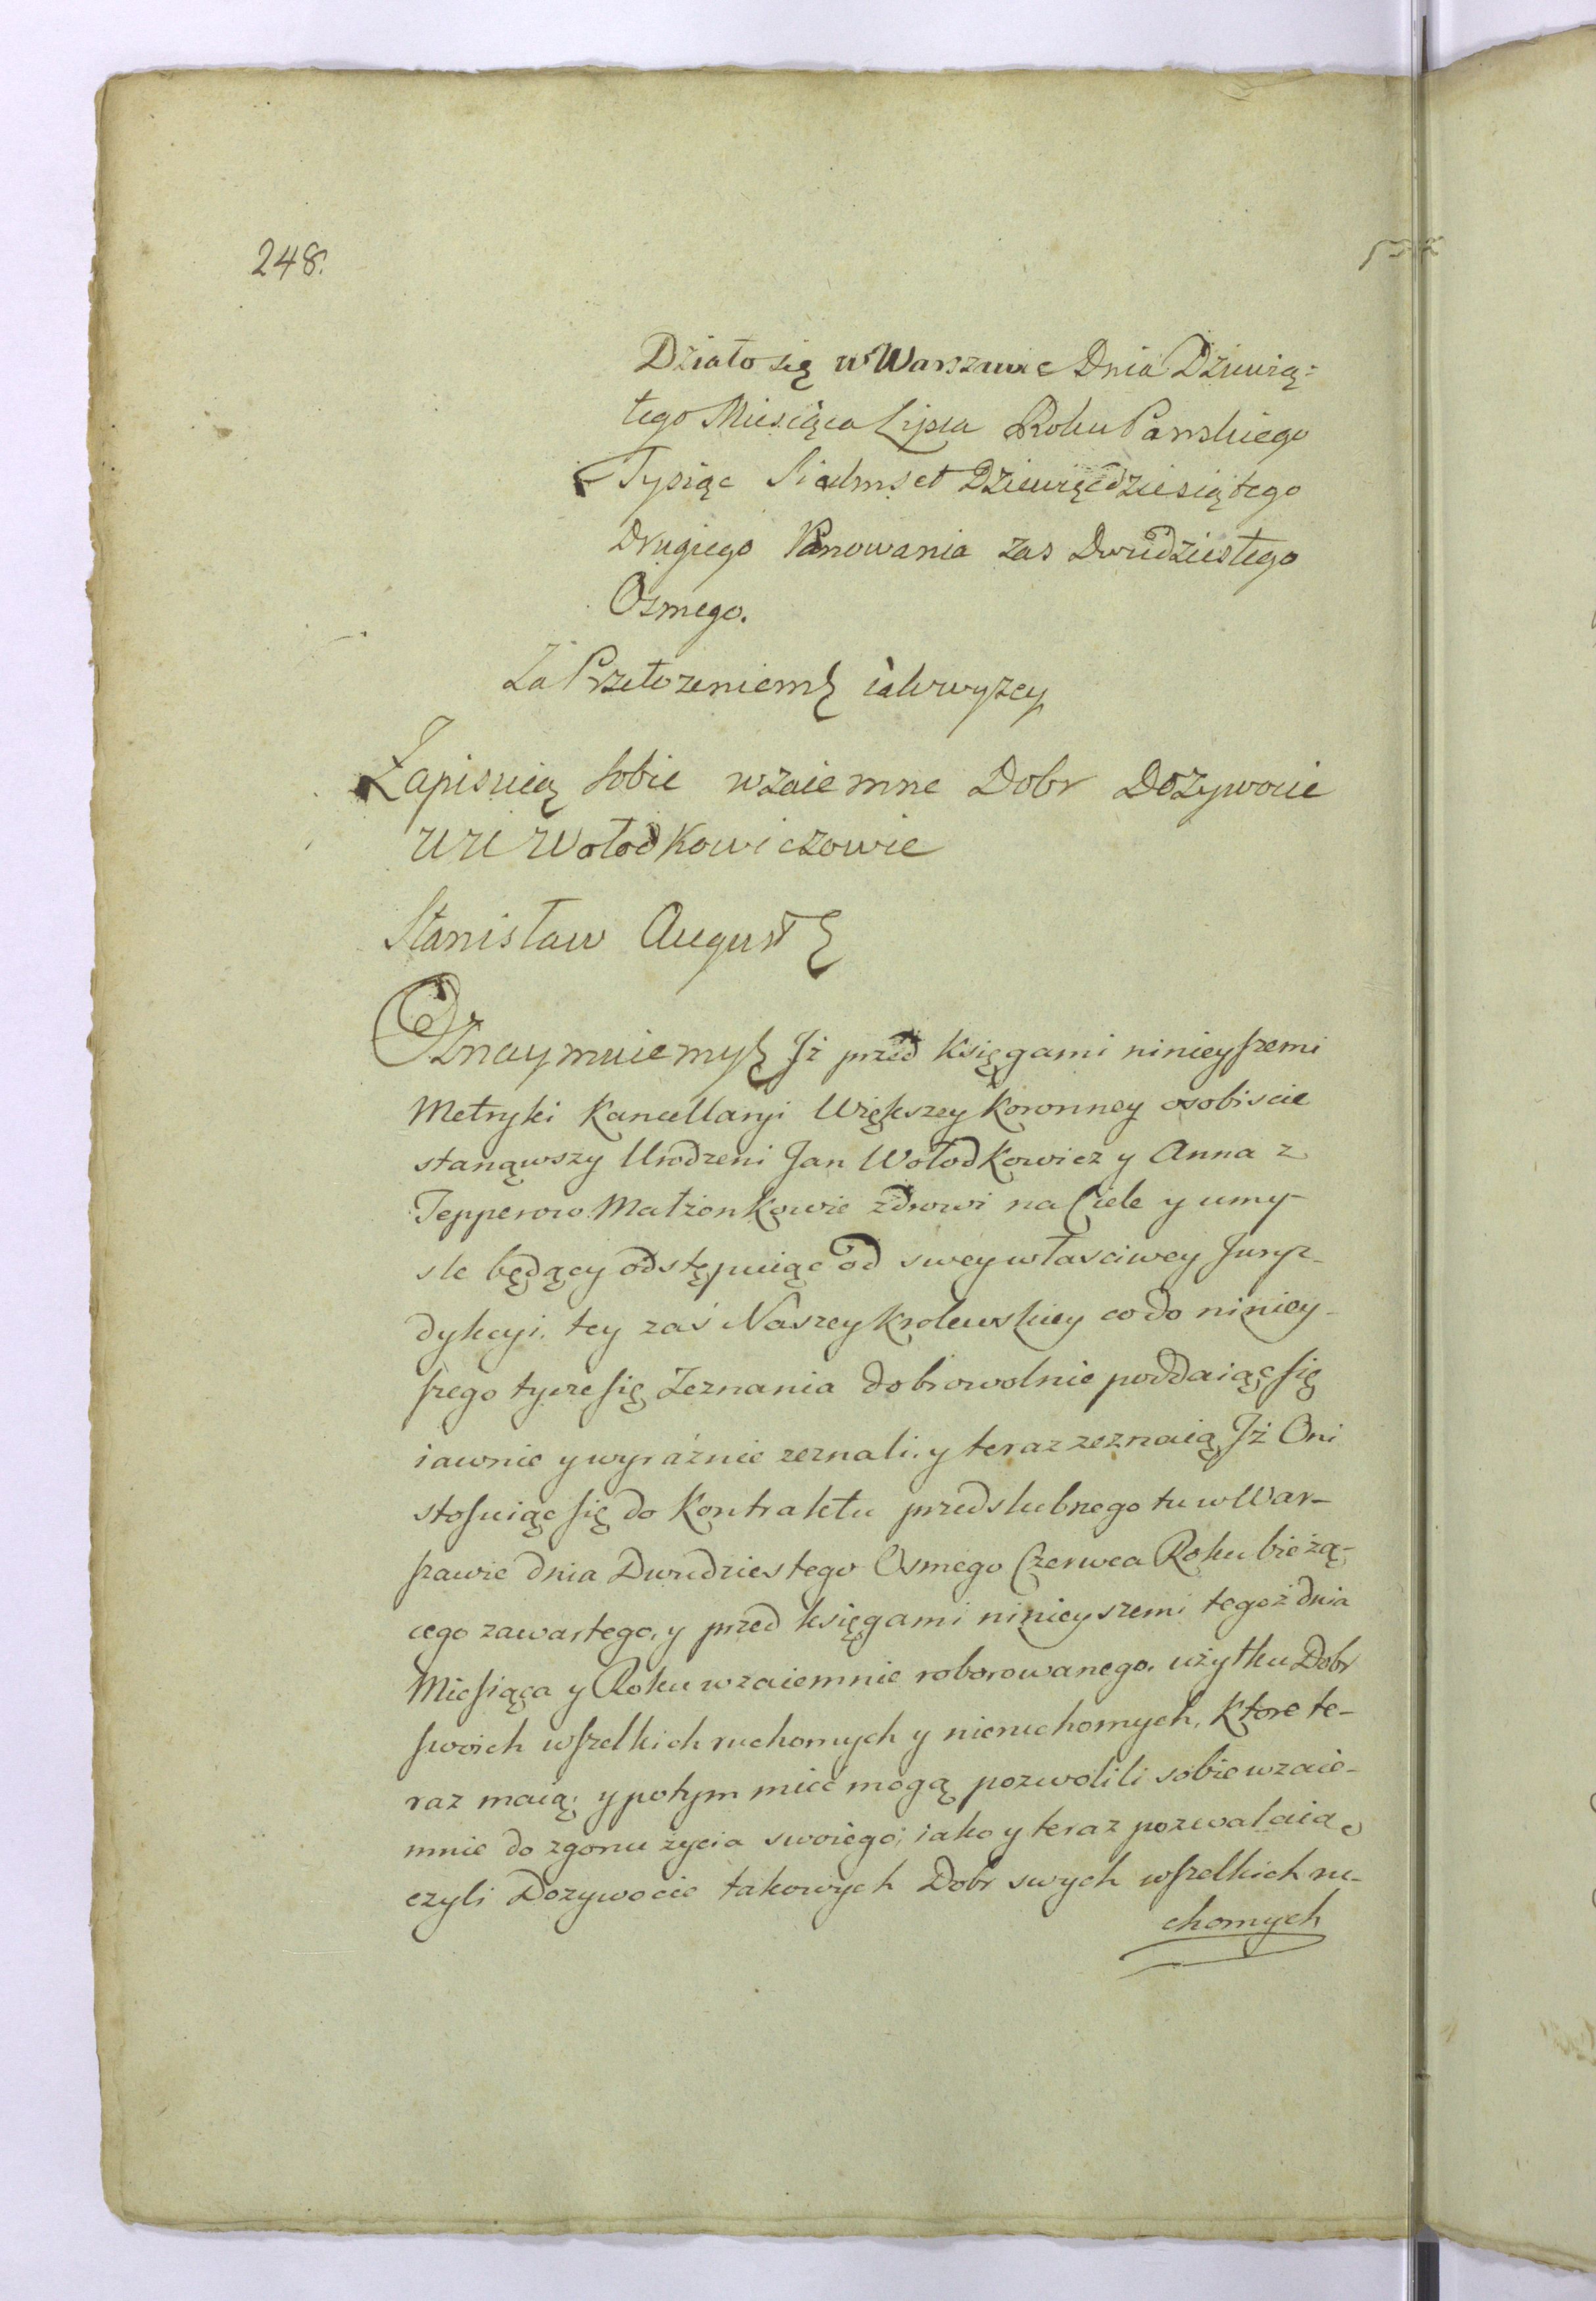 248.
Działo się w Warszawie Dnia Dziewią=
tego Miesiąca Lipca Roku Panskiego
Tysiąc Siedmset Dziewięcdziesiątego
Drugiego Panowania zas Dwudziestego
Osmego.
Za Przełozeniem iakwyzey
Zapisuią sobie wzaiemne Dobr Dozywocie
UU Wołodkowiczowie
Stanisław August
Oznaymuiemy Jż przed Księgami ninieyszemi
Metryki Kancellaryi Większey Koronney osobiscie
stanąwszy Urodzeni Jan Wołodkowicz y Anna z
Tepperow Małżonkowie zdrowi na Ciele y umy-
sle będący odstępuiąc od swey własciwey Juryz-
dykcyi. tey zaś Naszey Krolewskiey co do niniey-
szego tycze się Zeznania dobrowolnie poddaiąc się
iawnie y wyráznie zeznali. y teraz zeznaią Jż Oni
stosuiąc się do Kontraktu przedslubnego tu w War-
szawie dnia Dwudziestego Osmego Czerwca Roku bieżą-
cego zawartego, y przed księgami ninieyszemi tegoż dnia
Miesiąca y Roku wzaiemnie roborowanego. użytku Dobr
swoich wszelkich ruchomych y nieruchomych, Ktore te-
raz maią; y potym mieć mogą pozwolili sobie wzaie-
mnie do zgonu życia swoiego; iako y teraz pozwalaią,
czyli Dozywocie takowych Dobr swych wszelkich ru-
chomych